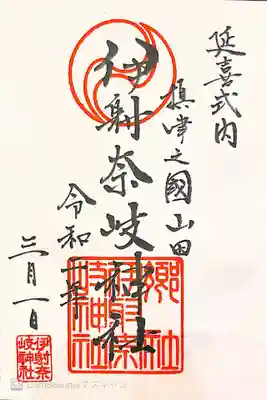 延喜式内
摂津之國山田
伊射奈岐神社
令和二年
三月一日
郷社
伊射奈
岐神社
伊射奈
岐神社